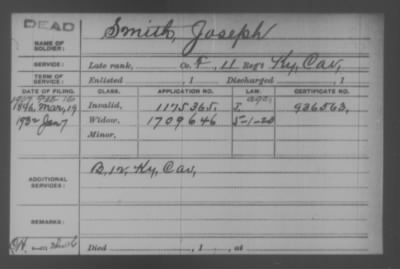 DEAD
NAME OF SOLDIER: Smith, Joseph
SERVICE: Late rank, Co. F, 11 Reg't Ky, Cav,
TERM OF SERVICE: Enlisted , 1 Discharged , 1
DATE OF FILING. CLASS. APPLICATION NO. LAW. CERTIFICATE NO.
age,
1896, Mar, 19 Invalid, 1175365, I 926563,
Jan 7 Widow, 1709646 5-1-20
Minor,
ADDITIONAL SERVICES: B, 12, Ky, Cav,
REMARKS:
Died , 1 , at